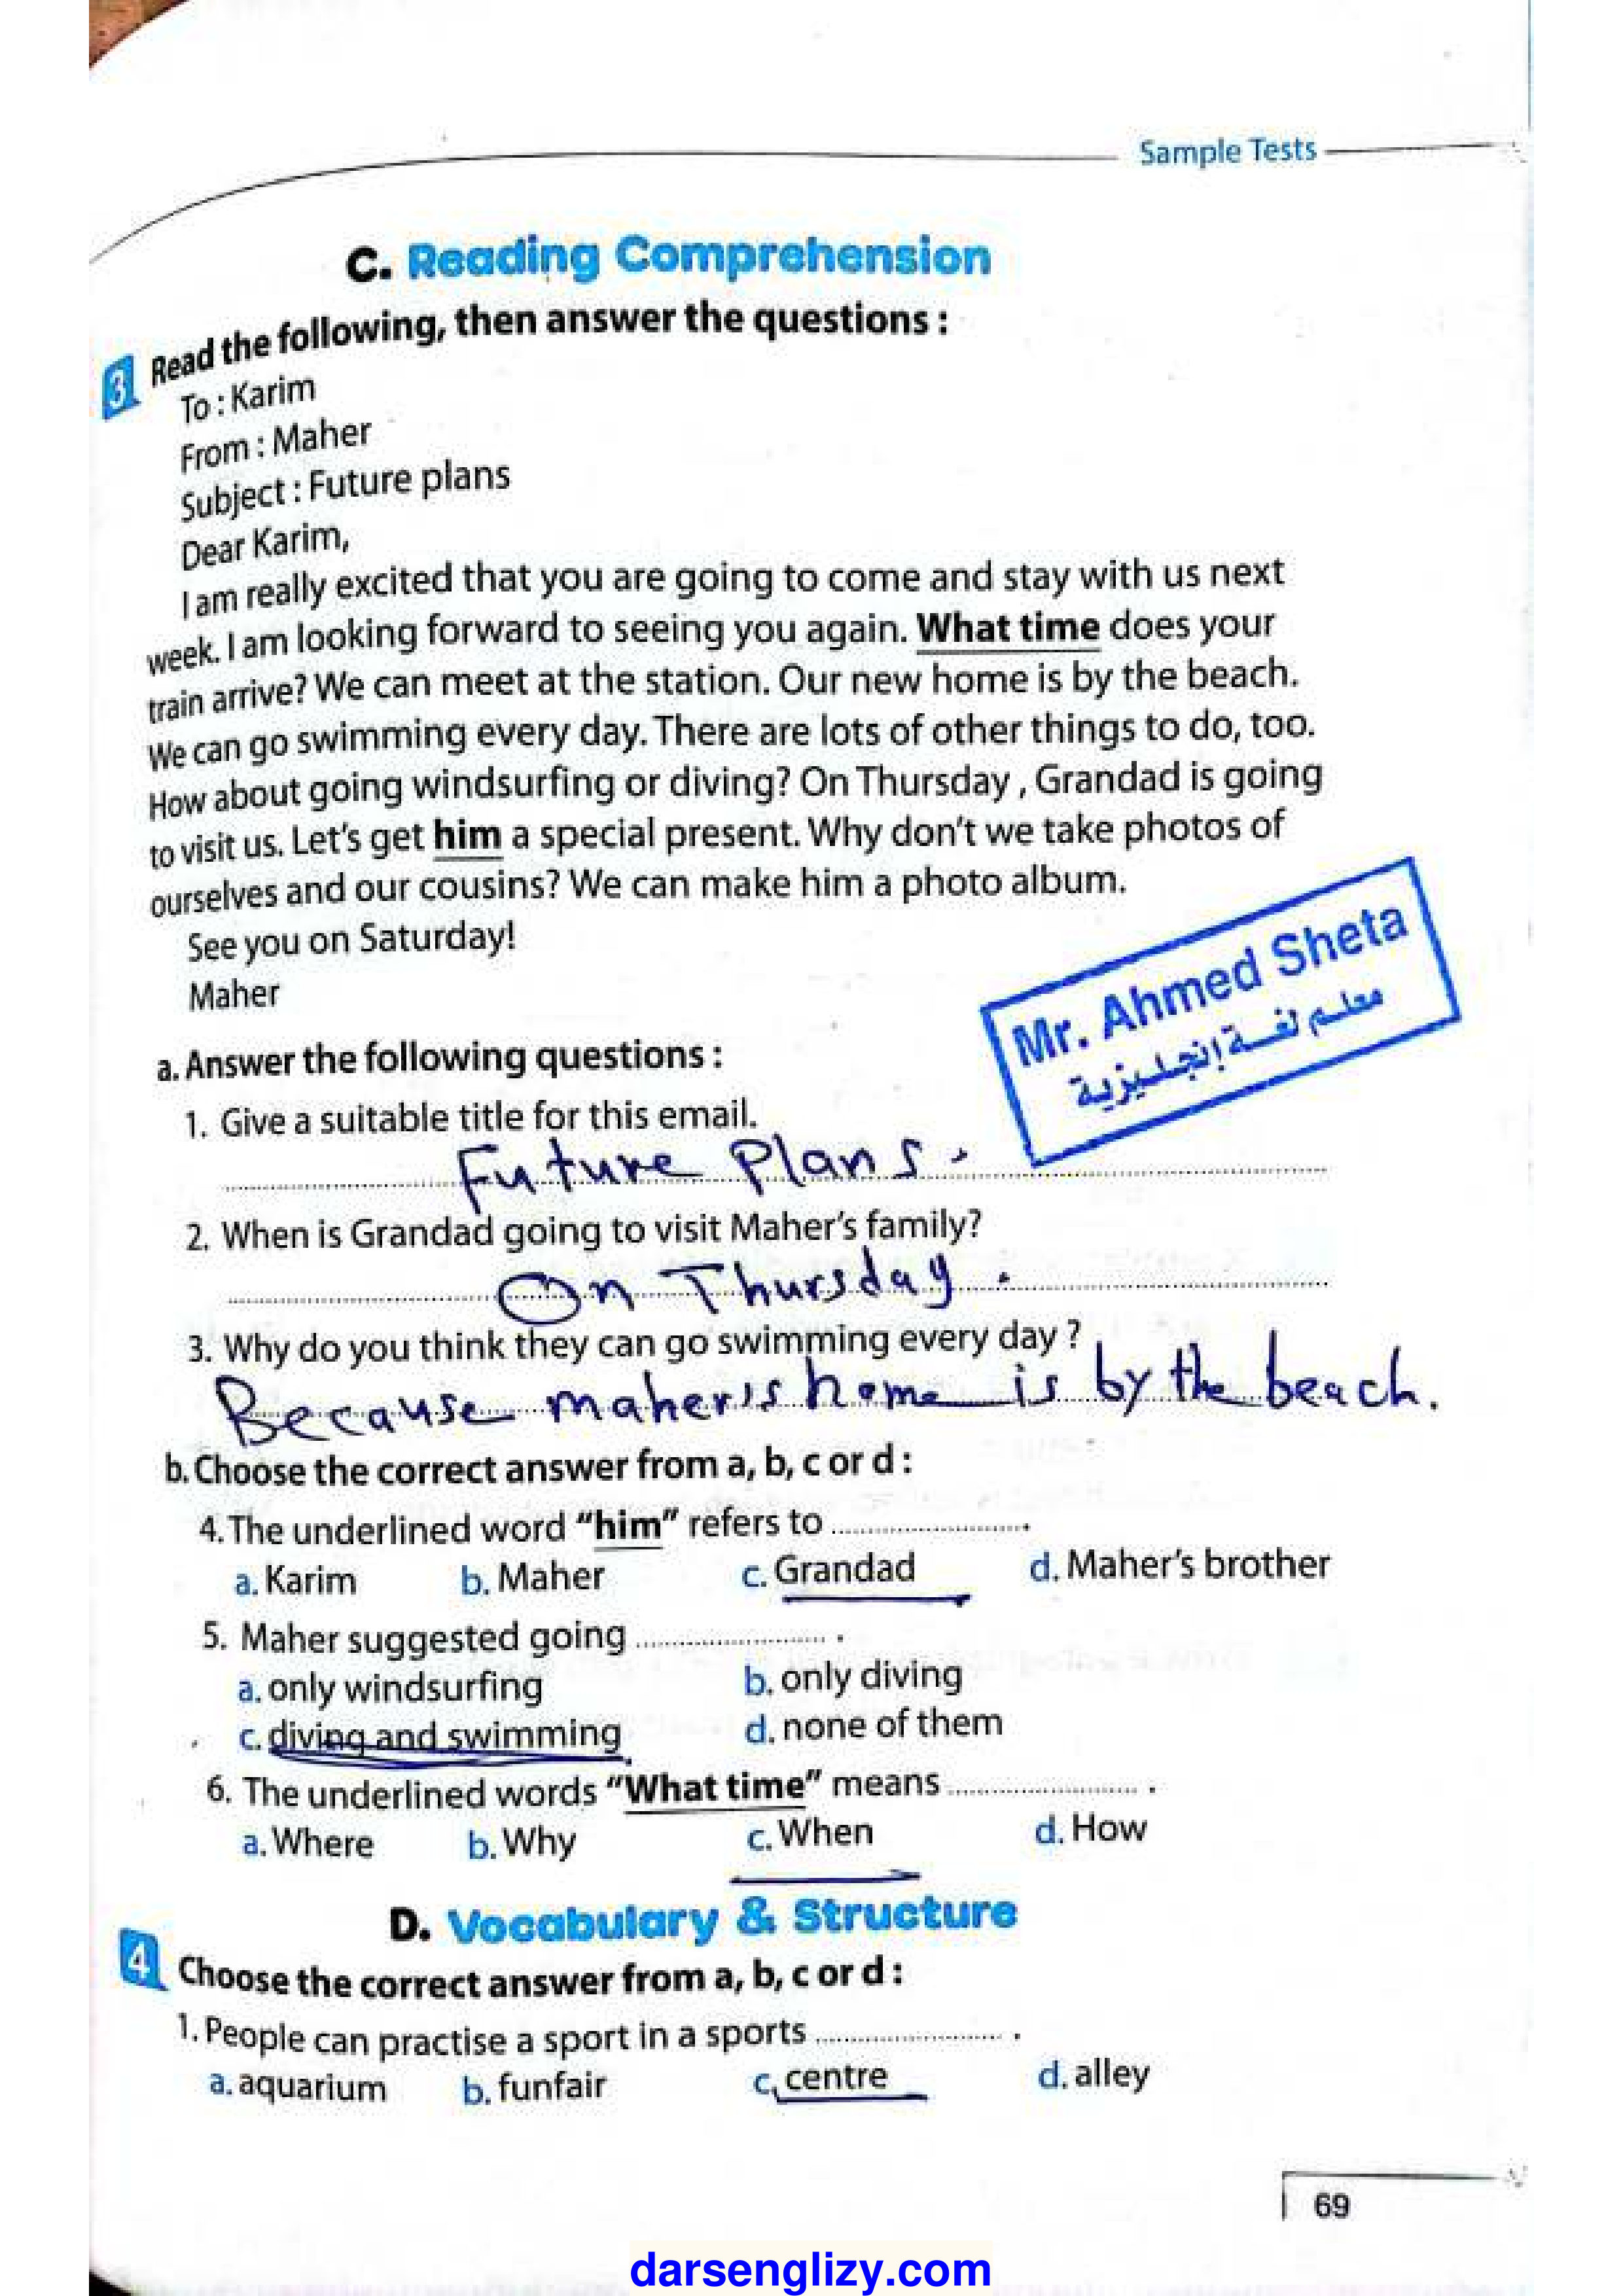 Sample Tests
C. Reading Comprehension
3 Read the following, then answer the questions :
To : Karim
From : Maher
Subject : Future plans
Dear Karim,
I am really excited that you are going to come and stay with us next
week. I am looking forward to seeing you again. What time does your
train arrive? We can meet at the station. Our new home is by the beach.
We can go swimming every day. There are lots of other things to do, too.
How about going windsurfing or diving? On Thursday , Grandad is going
to visit us. Let's get him a special present. Why don't we take photos of
ourselves and our cousins? We can make him a photo album.
See you on Saturday!
Maher
Mr. Ahmed Sheta
معلم لغة إنجليزية
a. Answer the following questions :
1. Give a suitable title for this email.
Future Plans.
2. When is Grandad going to visit Maher's family?
On Thursday.
3. Why do you think they can go swimming every day ?
Because maher's home is by the beach.
b. Choose the correct answer from a, b, c or d :
4. The underlined word "him" refers to ........................ .
a. Karim b. Maher c. Grandad d. Maher's brother
5. Maher suggested going ........................ .
a. only windsurfing b. only diving
c. diving and swimming d. none of them
6. The underlined words "What time" means ........................ .
a. Where b. Why c. When d. How
D. Vocabulary & Structure
4 Choose the correct answer from a, b, c or d :
1. People can practise a sport in a sports ........................ .
a. aquarium b. funfair c. centre d. alley
69
darsenglizy.com